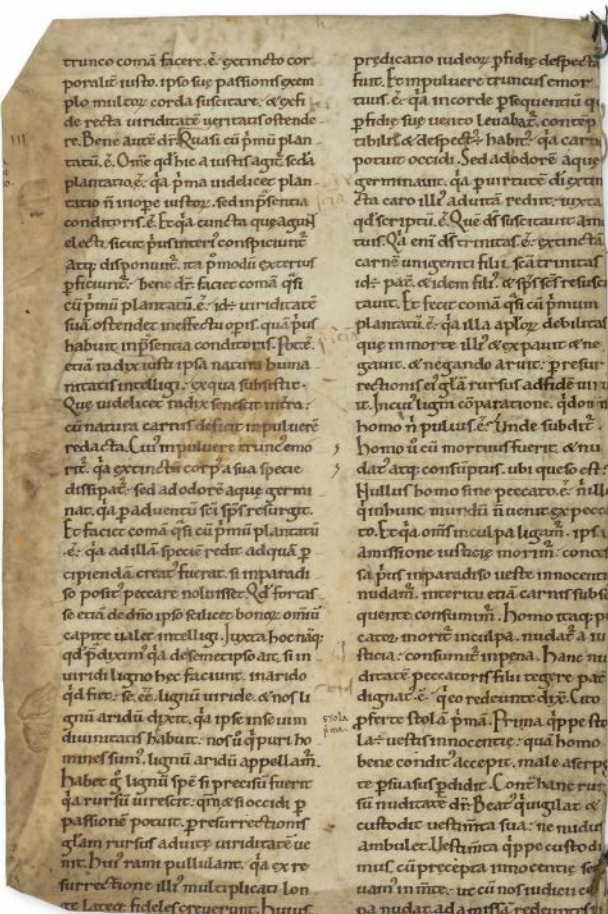 trunco comā facere.ē. extincto cor
poralit̄ iusto. ipso suę passionis exem
plo multoꝝ corda suscitare. & exfi
de recta uiriditatē ueritatis ostende
re. Bene autē dr̄. Quasi cū p̄mū plan
tatū.ē. Om̄e qd̄ hic a iustis agit̄. sc̄da
plantatio.ē. q̇a p̄ma uidelicet plan
tatio n̄ in ope iustoꝝ. sed inp̄sentia
conditoris.ē. Et q̇a cuncta quę agunt
electi. sicut p̄us interi᾽ conspiciunt̄
Atq; disponunt̄. ita p̄modū exterius
p̄ficiunt̄. bene dr̄. faciet comā q̇si
cū p̄mū plantatū.ē. id÷ uiriditatē
suā ostendet in effectu opis. quā p̄us
habuit inp̄sentia conditoris. Pot.ē.
etiā radix iusti ipsa natura huma
nitatis intelligi. ex qua subsistit.
Quę uidelicet radix senescit in t̄ra.
cū natura carnis deficit in puluerē
redacta. Cui᾽ in puluere trunc᾽ emo
rit̄. q̇a extinctū corp᾽ a sua specie
dissipat̄. sed ad odorē aquę germi
nat. q̇a p aduentū sc̄i sp̄s resurgit.
Et faciet comā q̇si cū p̄mū plantatū
.ē. q̇a ad illā speciē redit ad quā p̄
cipiendā creat᾽ fuerat. si in paradi
so posit᾽ peccare noluisset. Qd̄ fortas
se etiā de dn̄o ipso scilicet bonoꝝ om̄iū
capite ualet intelligi. Iuxta hoc nāq;
qd̄ p̄dixim᾽ q̇a de semet ipso ait. si in
uiridi ligno hęc faciunt. in arido
qd̄ fiet. se.ēē. lignū uiride. & nos li
gnū aridū dixit. q̇a ipse in se uim
diuinitatis habuit. nos ū q̇ puri ho
mines sum᾽. lignū aridū appellam̄.
Habet g̊ lignū spē si precisū fuerit
q̇a rursū uirescit. qm̄ & si occidi p
passionē potuit. p resurrectionis
gl̄am rursus ad uitę uiriditatē ue
nit. Hui᾽ rami pullulant. q̇a ex re
surrectione illi᾽ multiplicati lon
ge lateq; fideles creuerunt. Huius
prędicatio iudeoꝝ p̄fidię despecta
fuit. Et in puluere truncus emor
tuus.ē. q̇a in corde p̄sequentiū q̇
p̄fidię suę uento leuabat̄. contēp
tibilis & despect᾽ habit᾽. q̇a carn
potuit occidi. Sed ad odorē aquę
germinauit. q̇a p uirtutē di extin
cta caro illi᾽ ad uitā rediit. iuxta
qd̄ scriptū.ē. Quē ds̄ suscitauit a m
tuis. Q̇a eni ds̄ trinitas.ē. extinctā
carnē unigeniti filii. sc̄a trinitas
id÷ pat̄. & idem fili᾽. & sp̄s sc̄s resusci
tauit. Et fecit comā q̇si cū p̄mum
plantatū.ē. q̇a illa aploꝝ debilitas
quę in morte illi᾽ & expauit & ne
gauit. & negando aruit. p resur
rectionis ei᾽ gl̄a rursus ad fidē uiru
it. In cui᾽ ligni cōparatione. q̇d om̄i
homo n̄ puluis.ē. Unde subdit̄.
Homo ū cū mortuus fuerit. & nu
dat᾽ atq; consūptus. ubi queso est.
Nullus homo sine peccato.ē. n̄ ille
q̇ in hunc mundū n̄ uenit ex pecca
to. Et q̇a om̄s in culpa ligam̄. ips
amissione iusticię morim̄. conces
sa p̄us in paradiso ueste innocenti
nudam̄. interitu etiā carnis subse
quente consumim̄. Homo itaq; p
cator morit̄ in culpa. nudat̄ a iu
sticia. consumit̄ in pena. Hanc nu
ditatē peccatoris filii tegere pat̄
dignat᾽.ē. q̇ eo redeunte dix̄. Cito
p̄ferte stolā p̄mā. Prima q̇ppe sto
la÷ uestis innocentię. quā homo
bene condit᾽ accepit. male a serp̄
te p̄suasus p̄didit. Cont̄ hanc rur
sū nuditatē dr̄. Beat᾽ q̇ uigilat &
custodit uestim̄ta sua. ne nudus
ambulet. Uestim̄ta q̇ppe custodi
mus. cū precepta innocentię ser
uam᾽ in m̄te. ut cū nos iudici cul
pa nudat. ad amissā redeuntes in
stola
p̄ma.
III